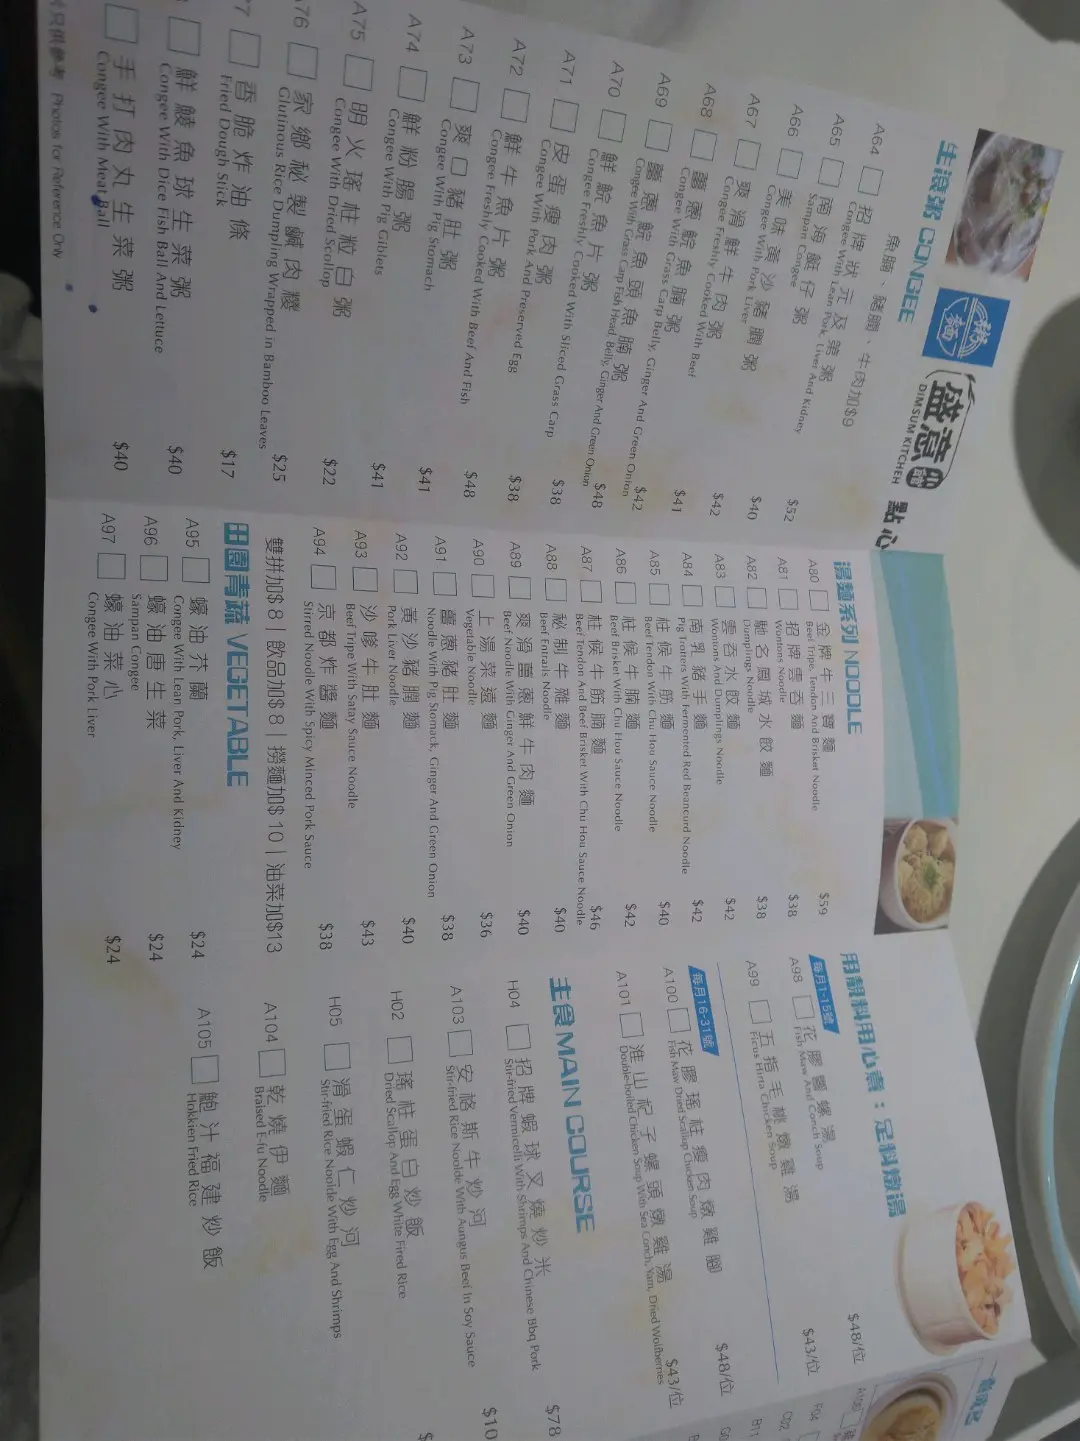 生滾粥 CONGEE
盛意
點心
DIMSUM KITCHEN
魚腩、豬膶、牛肉加$9
A64 招牌狀元及第粥 $52
Congee With Lean Pork, Liver And Kidney
A65 南海艇仔粥 $40
Sampan Congee
A66 美味黃沙豬膶粥 $42
Congee With Pork Liver
A67 爽滑鮮牛肉粥 $41
Congee Freshly Cooked With Beef
A68 薑蔥鯇魚腩粥 $42
Congee With Grass Carp Belly, Ginger And Green Onion
A69 薑蔥鯇魚頭魚腩粥 $48
Congee With Grass Carp Fish Head, Belly, Ginger And Green Onion
A70 鮮鯇魚片粥 $38
Congee Freshly Cooked With Sliced Grass Carp
A71 皮蛋瘦肉粥 $38
Congee With Pork And Preserved Egg
A72 鮮牛魚片粥 $48
Congee Freshly Cooked With Beef And Fish
A73 爽口豬肚粥 $41
Congee With Pig Stomach
A74 鮮粉腸粥 $41
Congee With Pig Giblets
A75 明火瑤柱粒白粥 $22
Congee With Dried Scrollop
A76 家鄉秘製鹹肉糭 $25
Glutinous Rice Dumpling Wrapped in Bamboo Leaves
香脆炸油條 $17
Fried Dough Stick
鮮鯪魚球生菜粥 $40
Congee With Dice Fish Ball And Lettuce
手打肉丸生菜粥 $40
Congee With Meat Ball
片只供參考 Photos for Reference Only
湯麵系列 NOODLE
A80 金牌牛三寶麵 $59
Beef Tripe, Tendon And Brisket Noodle
A81 招牌雲吞麵 $38
Wontons Noodle
A82 馳名鳳城水餃麵 $38
Dumplings Noodle
A83 雲吞水餃麵 $42
Wontons And Dumplings Noodle
A84 南乳豬手麵 $42
Pig Trotters With Fermented Red Beancurd Noodle
A85 柱候牛筋麵 $40
Beef Tendon With Chu Hou Sauce Noodle
A86 柱候牛腩麵 $42
Beef Brisket With Chu Hou Sauce Noodle
A87 柱候牛筋腩麵 $46
Beef Tendon And Beef Brisket With Chu Hou Sauce Noodle
A88 秘制牛雜麵 $40
Beef Entrails Noodle
A89 爽滑薑蔥鮮牛肉麵 $40
Beef Noodle With Ginger And Green Onion
A90 上湯菜遠麵 $36
Vegetable Noodle
A91 薑蔥豬肚麵 $38
Noodle With Pig Stomack, Ginger And Green Onion
A92 黃沙豬膶麵 $40
Pork Liver Noodle
A93 沙嗲牛肚麵 $43
Beef Tripe With Satay Sauce Noodle
A94 京都炸醬麵 $38
Stirred Noodle With Spicy Minced Pork Sauce
雙拼加$8 | 飲品加$8 | 撈麵加$10 | 油菜加$13
田園青蔬 VEGETABLE
A95 蠔油芥蘭 $24
Congee With Lean Pork, Liver And Kidney
A96 蠔油唐生菜 $24
Sampan Congee
A97 蠔油菜心 $24
Congee With Pork Liver
用靚料用心煮：足料燉湯
每月1-15號
A98 花膠響螺湯 $48/位
Fish Maw And Conch Soup
A99 五指毛桃燉雞湯 $43/位
Ficus Hirta Chicken Soup
每月16-31號
A100 花膠瑤柱瘦肉燉雞腳 $48/位
Fish Maw Dried Scallop Chicken Soup
A101 淮山杞子螺頭燉雞湯 $43/位
Double-boiled Chicken Soup With Sea Conch, Yam, Dried Wolfberries
主食 MAIN COURSE
H04 招牌蝦球叉燒炒米 $78
Stir-fried Vermicelli With Shrimps And Chinese Bbq Pork
A103 安格斯牛炒河 $10
Stir-fried Rice Noolde With Aungus Beef In Soy Sauce
H02 瑤柱蛋白炒飯
Dried Scallop And Egg White Fired Rice
H05 滑蛋蝦仁炒河
Stir-fried Rice Noolde With Egg And Shrimps
A104 乾燒伊麵
Braised E-fu Noodle
A105 鮑汁福建炒飯
Hokkien Fried Rice